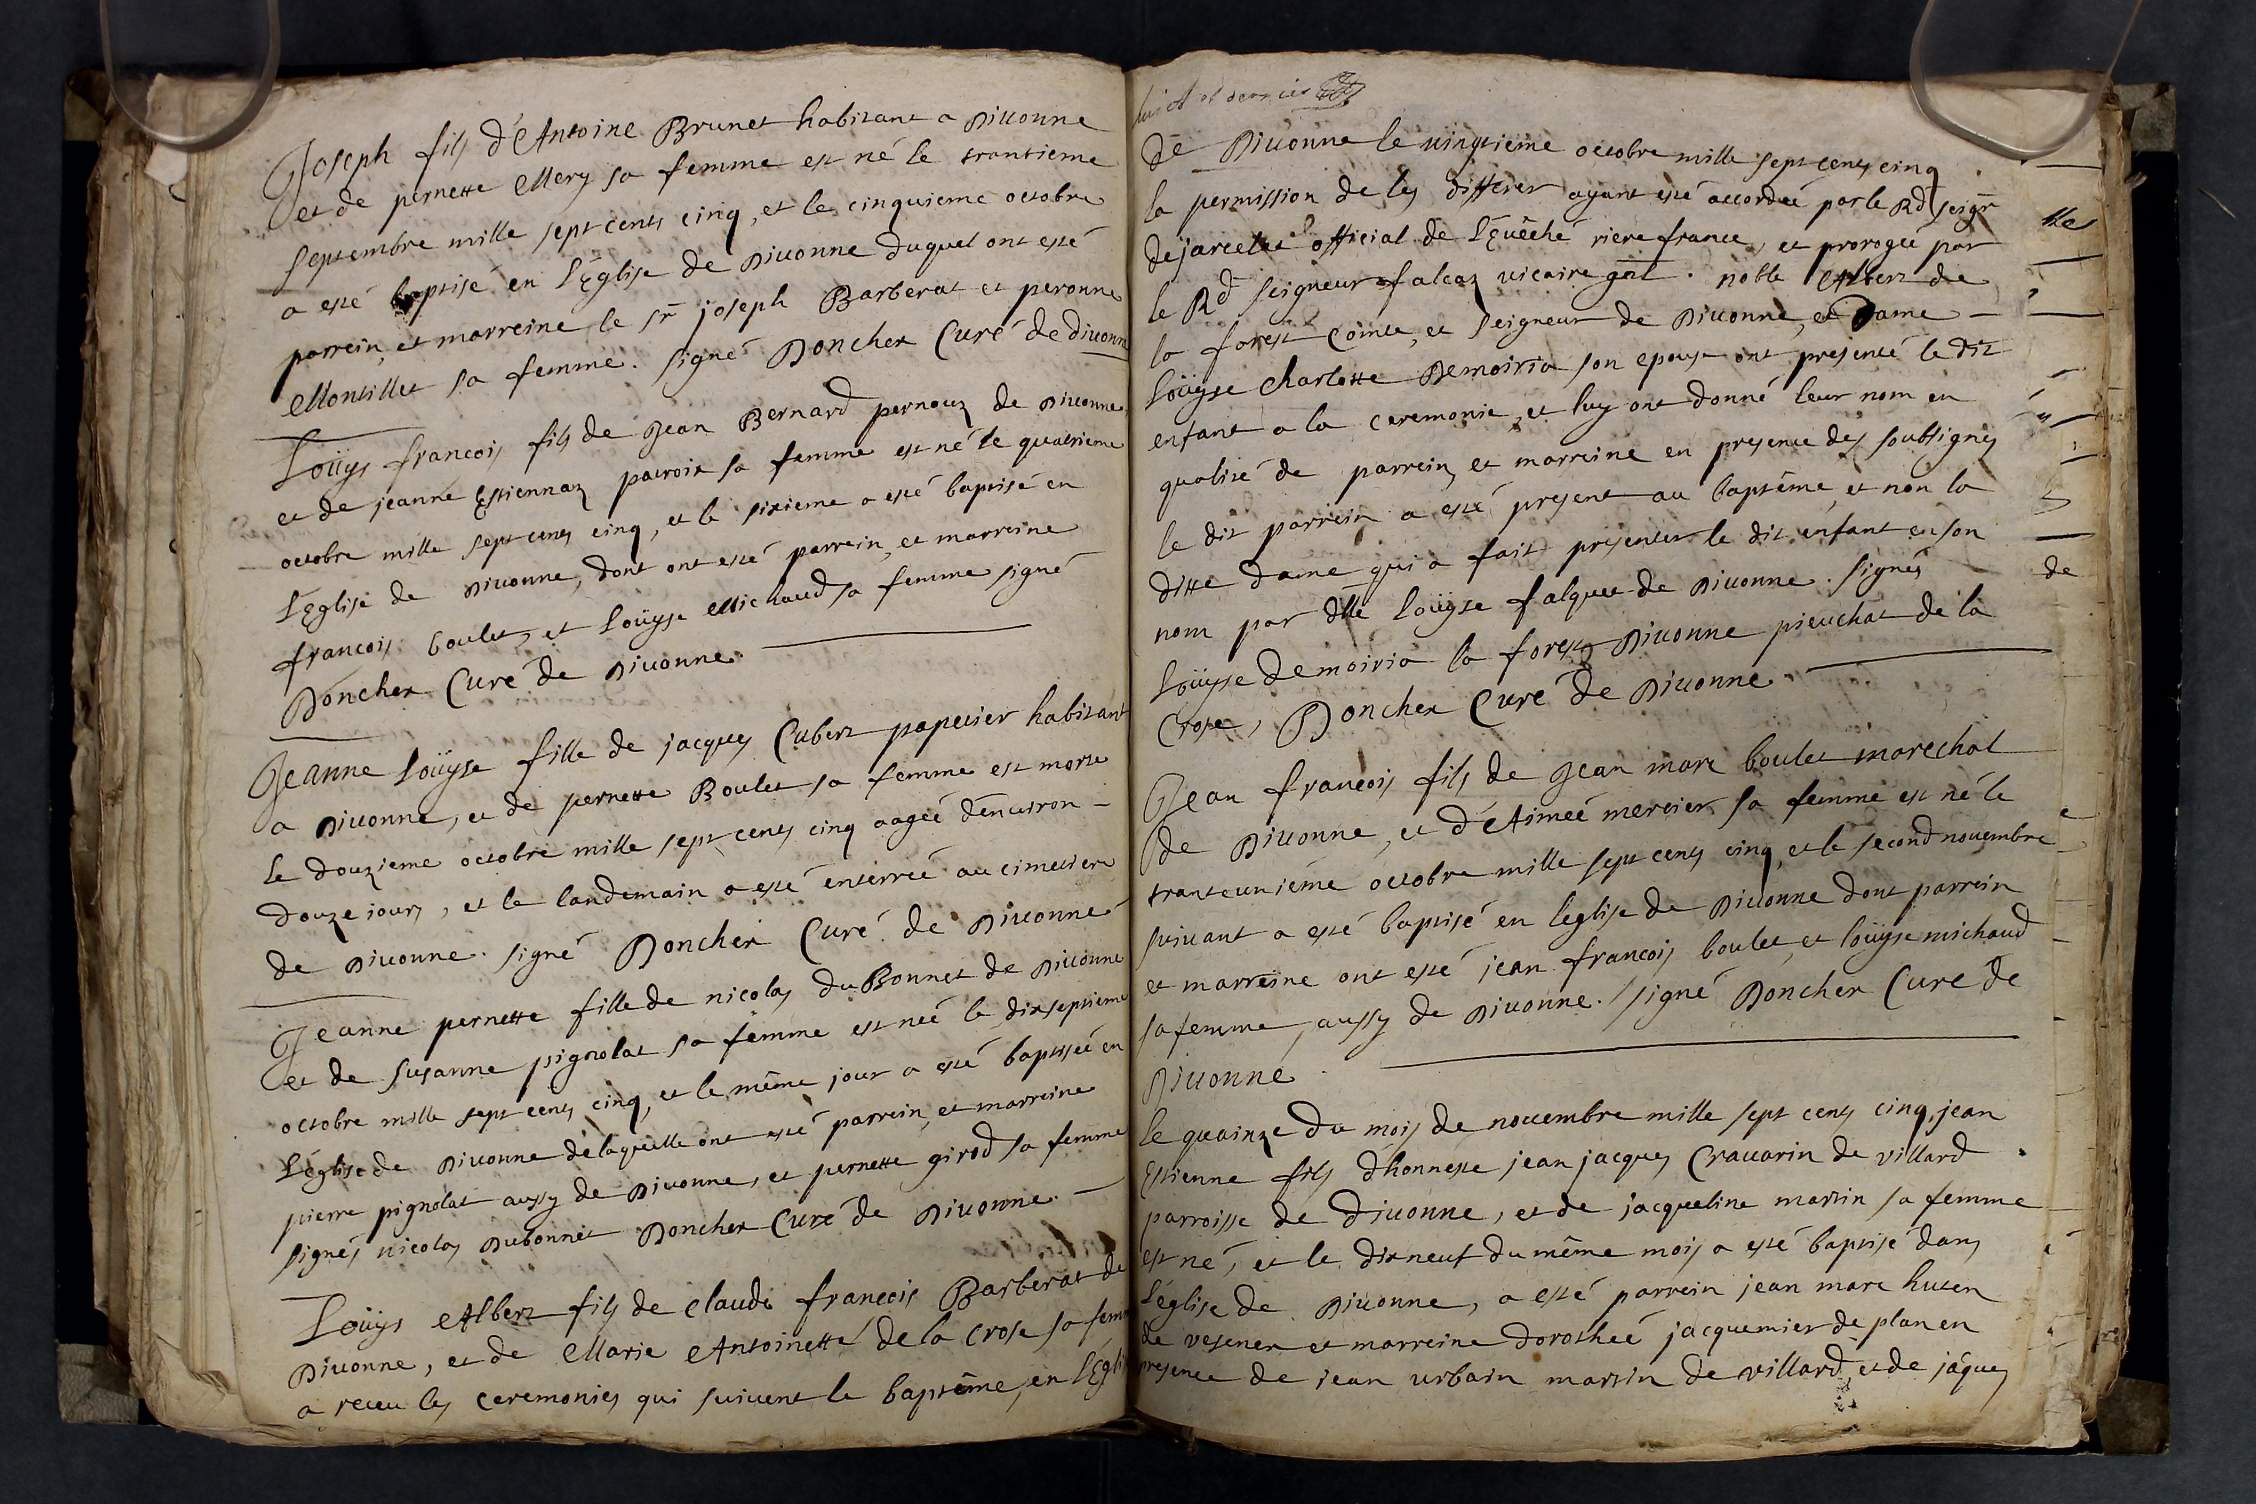 Joseph fils d'Antoine Brunet habitant a Divonne
et de pernette Mery sa femme est né le trantieme
septembre mille sept cents cinq, et le cinquieme octobre
a esté baptisé en l'Eglise de Divonne duquel ont esté
parrein, et marreine le sr joseph Barberat et peronne
Montillet sa femme. signé Doncher Curé de divonne
Loüys francois fils de Jean Bernard pernouz de Divonne
et de jeanne Estiennaz patroix sa femme est né le quatrieme
octobre mille sept cents cinq, et le sixieme a esté baptisé en
l'Eglise de Divonne, dont ont esté parrein, et marreine
francois boulet, et Loüyse Michaud sa femme signé
Doncher Curé de Divonne.
Jeanne Loüyse fille de jacques Cubert papetier habitant
a Divonne, et de pernette Boulet sa femme est morte
le douzieme octobre mille sept cents cinq aageé d'environ
douze jours, et le landemain a esté enterreé au cimetiere
de Divonne. signé Doncher Curé de Divonne
Jeanne pernette fille de nicolas du Bonnet de Divonne
et de susanne pignolat sa femme est neé le dixseptieme
octobre mille sept cents cinq, et le même jour a esté baptiseé en
l'église de Divonne de laquelle ont esté parrein, et marreine
pierre pignolat aussy de Divonne, et pernette girod sa femme
signés nicolas Dubonnet Doncher Curé de Divonne.
Loüys Albert fils de claude francois Barberat de
Divonne, et de Marie Antoinette de la Crose sa fem
a receu les ceremonies qui suivent le baptême, en l'Egli
et dernier
de Divonne le vingtieme octobre mille sept cents cinq
la permission de les differer ayant esté accordeé par le Rd seigr
dejarcelet official de l'Evêché riere france, et prorogeé par
le Rd seigneur falcaz vicaire gñl. noble Albert de
la forest Comte, et seigneur de Divonne, et Dame
Loüyse charlotte Demoiria son epouse ont presenté le dit
enfant a la ceremonie, et luy ont donné leur nom en
qualité de parrein, et marreine en presence des soubsignés
le dit parrein a esté present au baptême, et non la
ditte dame qui a fait presenter le dit enfant en son
nom par dlle Loüyse falquet de Divonne. signés
Loüyse Demoiria la forest Divonne pieuchat de la
Crose, Doncher Curé de Divonne.
Jean francois fils de Jean marc boulet maréchal
de Divonne, et d'Aimeé mercier sa femme est né le
tranteunième octobre mille sept cents cinq, et le second novembre
suivant a esté baptisé en leglise de Divonne dont parrein
et marreine ont esté jean francois boulet, et loüyse michaud
sa femme, aussy de Divonne. signé Doncher Cure de
Divonne.
Le quainze du mois de novembre mille sept cents cinq, jean
Estienne fils d'honneste jean jacques Cravarin de villard
parroisse de Divonne, et de jacqueline martin sa femme
est né, et le dixneuf du même mois a esté baptisé dans
l'église de Divonne, a esté parrein jean marc huten
de vesenex et marreine dorotheé jacquemier de plan en
presence de jean urbain martin de villard, et de jâques